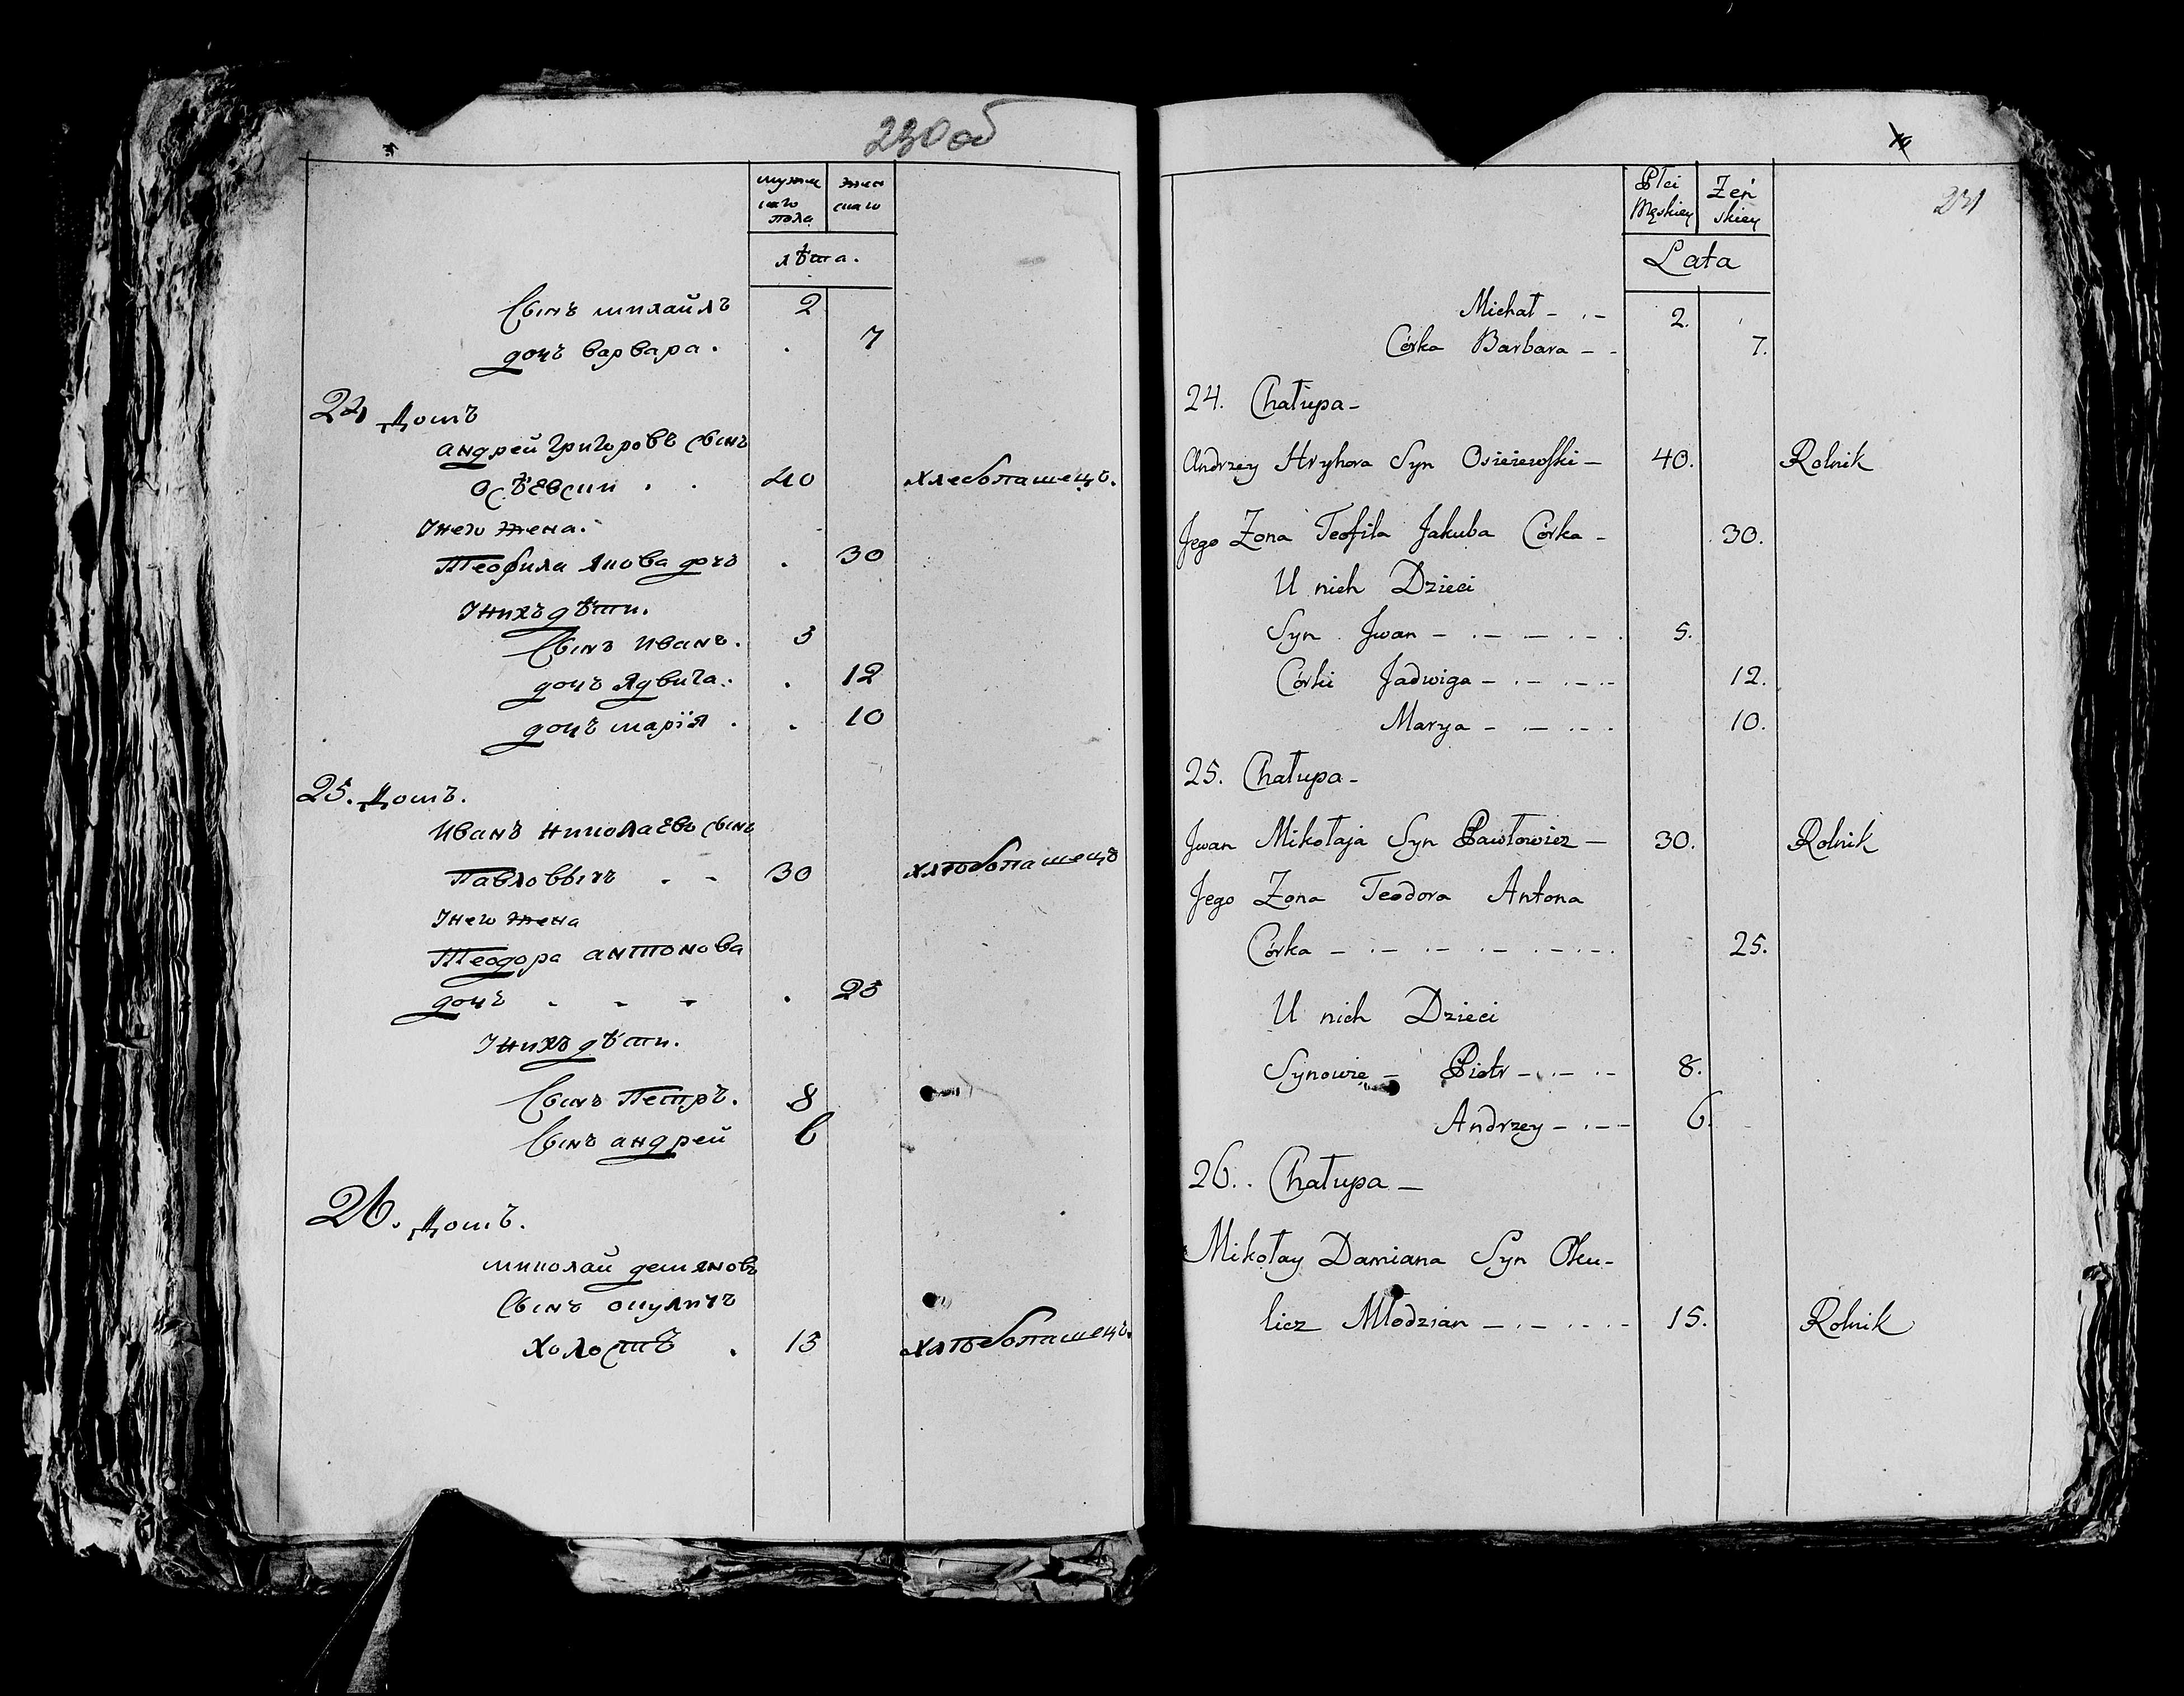 230 об
мужес
каго
пола
жен
скаго
лѣта.
Сынъ михайлъ 2
дочъ варвара. . 7
24 Домъ
андрей Григоровъ Сынъ
40 хлебопашецъ.
Унего жена.
Теофила Якова дочъ . 30
Унихъ дѣти.
Сынъ Иванъ. 5
дочъ Ядвига. . 12
дочъ марія . . 10
25. Домъ.
Иванъ николаевъ Сынъ
Павловичъ . - 30 хлѣбопашецъ
Унего жена
Теодора антонова
дочъ - - - . 25
Унихъ дѣти.
Сынъ Петръ. 8
Сынъ андрей 6
26. Домъ.
миколай демяновъ
Сынъ окуличъ
холостъ . 15 хлѣбопашецъ.
231
Płci
Męskiey
Żeń
skiey
Lata
Michał - . - 2.
Córka Barbara - - 7.
24. Chałupa -
Andrzey Hryhora Syn Osieiewski - 40. Rolnik
Jego Zona Teofila Jakuba Córka - 30.
U nich Dzieci
Syn Jwan - . - - . - . 5.
Córki Jadwiga - . - . - - 12.
Marya - . - . - . 10.
25. Chałupa -
Jwan Mikołaja Syn Pawłowicz - 30. Rolnik
Jego Zona Teodora Antona
Córka - . - . - . - . - . - . 25.
U nich Dzieci
Synowie - Piotr - . - . - 8.
Andrzey - . - - 6.
26. . Chałupa -
Mikołay Damiana Syn Oku-
licz Młodzian - . - . - . - 15. Rolnik